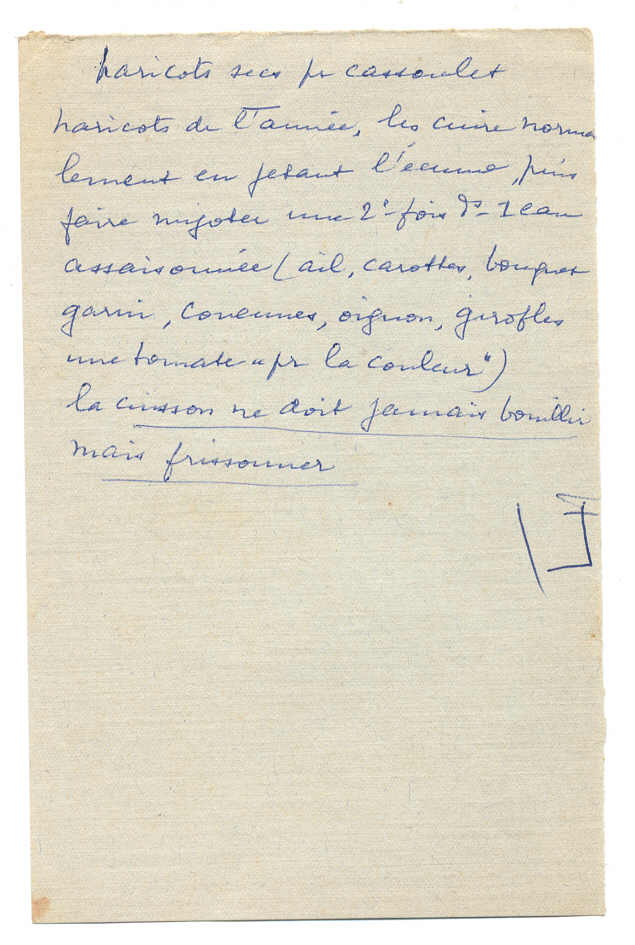 haricots secs pr cassoulet
haricots de l'année, les cuire norma
lement en jetant l'écume, puis
faire mijoter une 2e fois ds 1 eau
assaisonnée (ail, carottes, bouquet
garni, couennes, oignon, girofles
une tomate "pr la couleur")
la cuisson ne doit jamais bouillir
mais frissonner